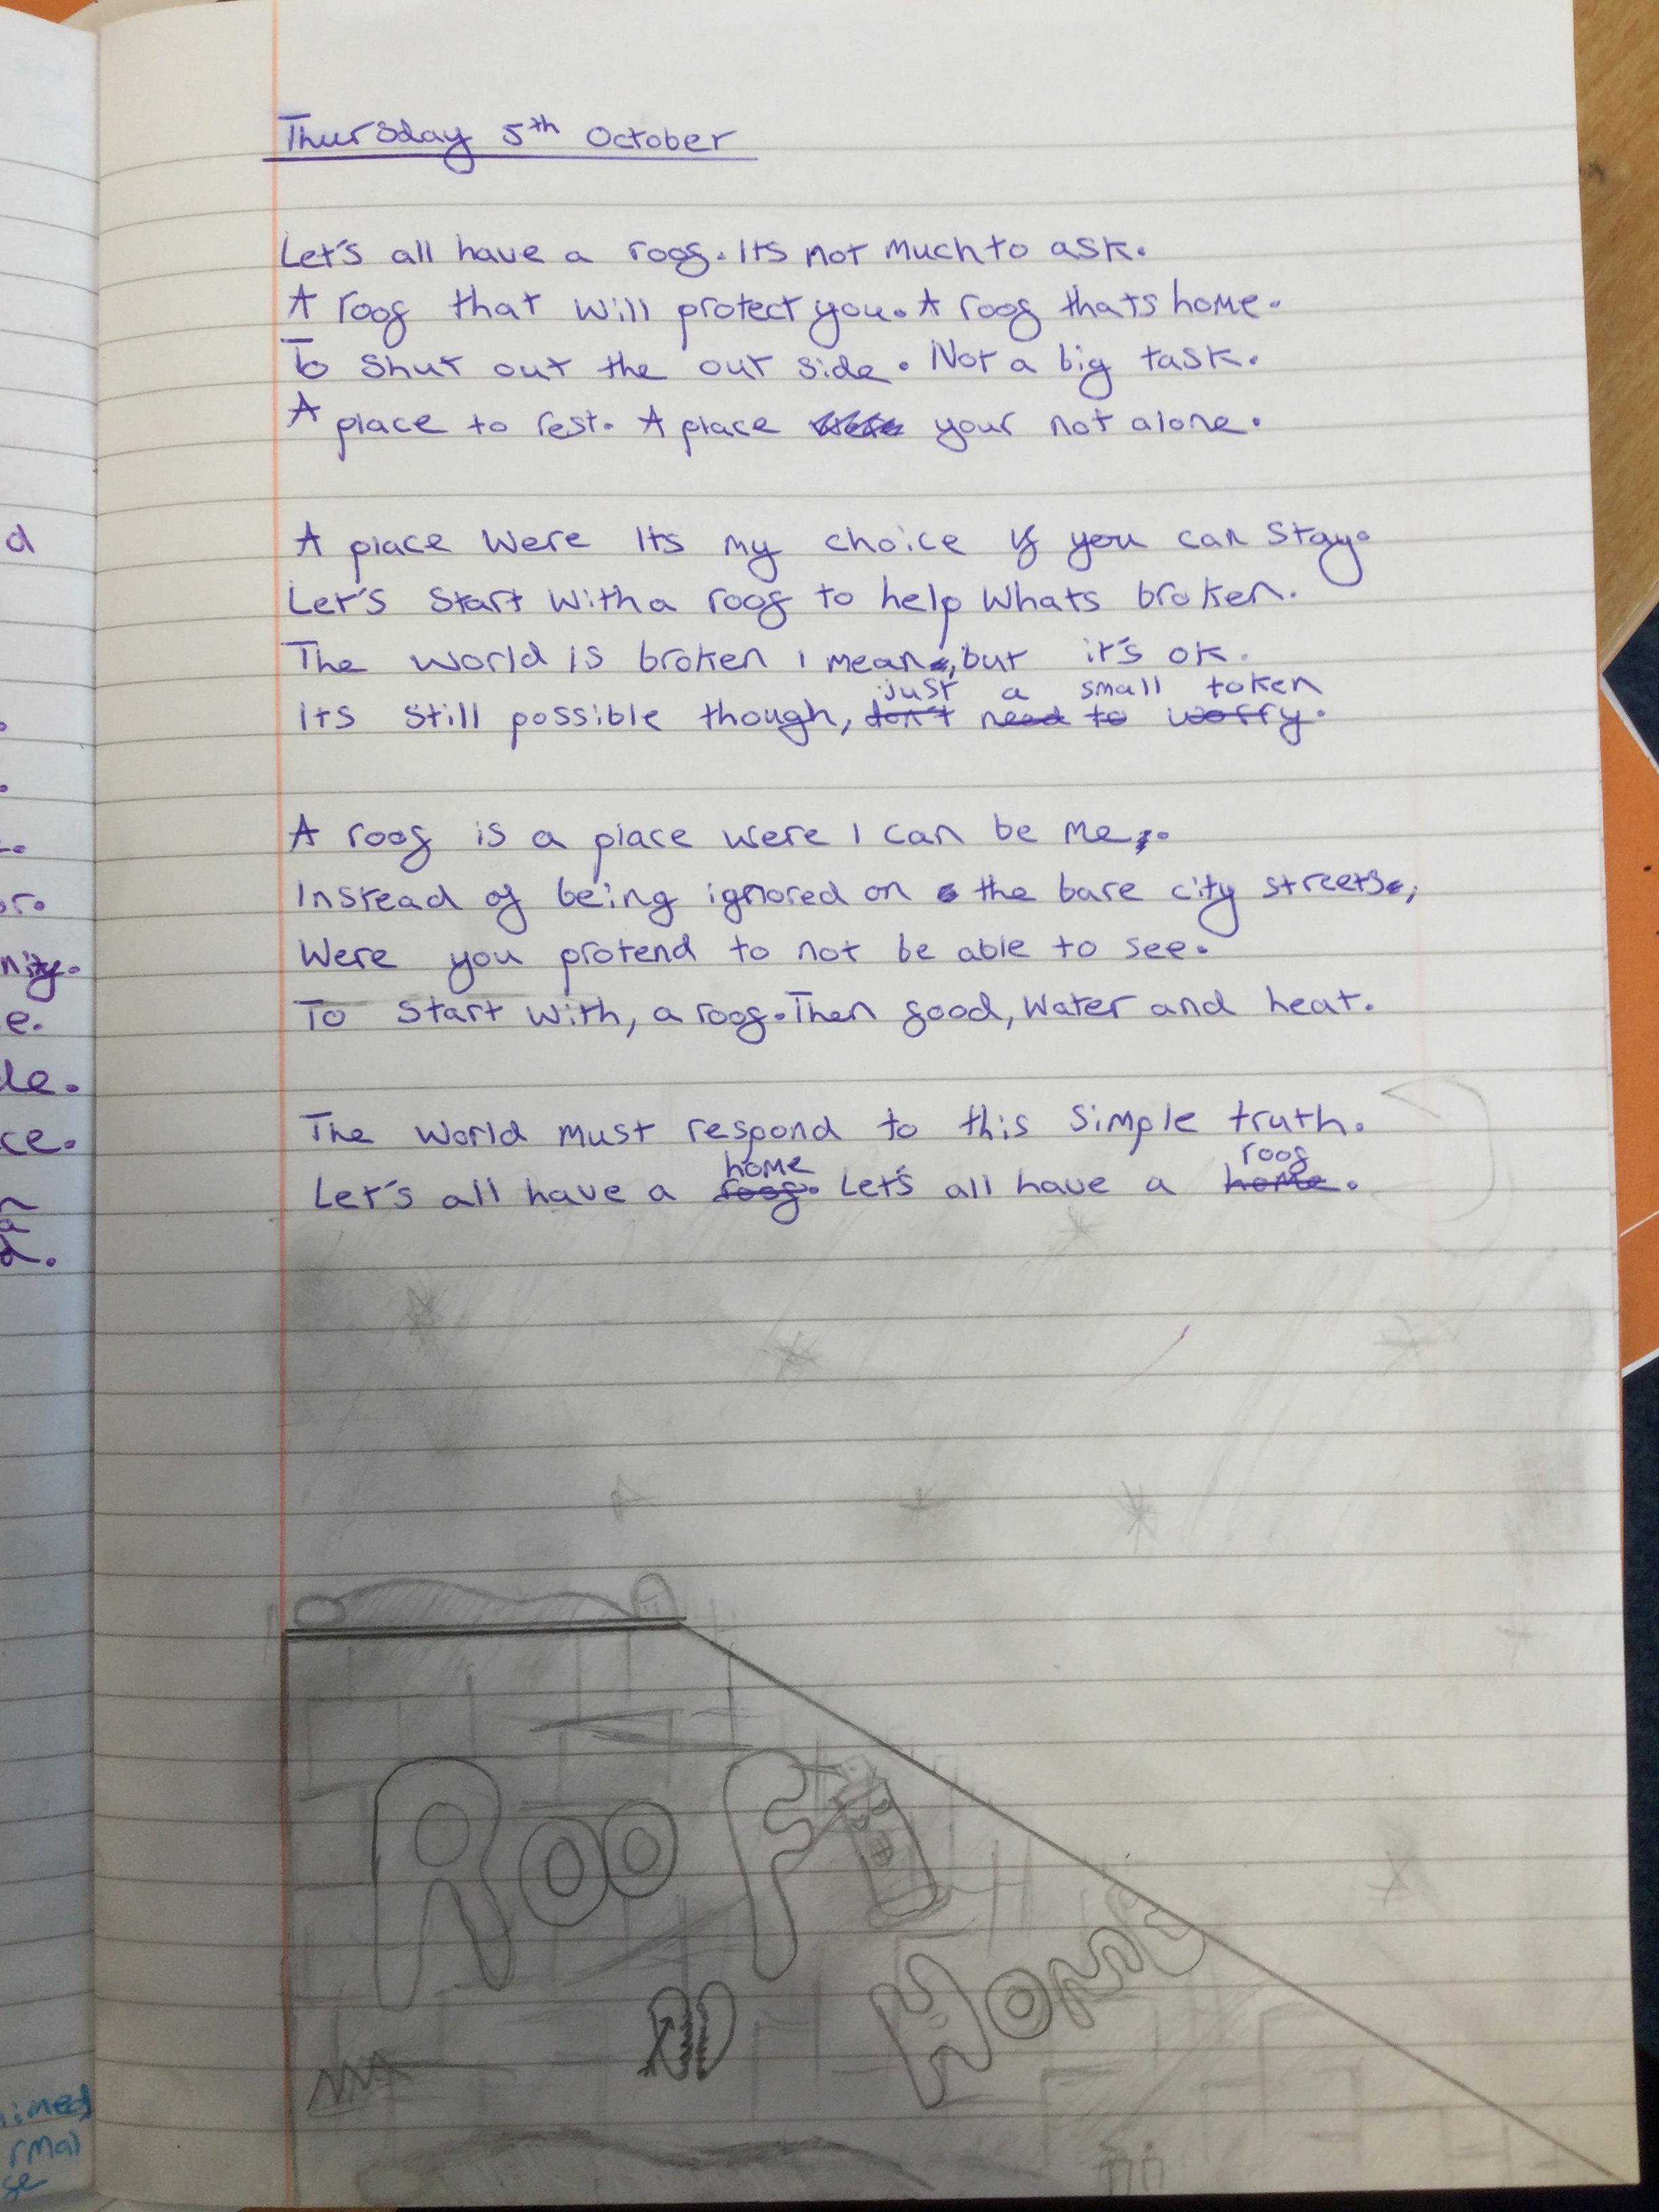 Thursday 5th October
Let's all have a roof. Its not much to ask.
A roof that will protect you. A roof thats home.
To shut out the out side. Not a big task.
A place to rest. A place were your not alone.
A place were its my choice if you can stay.
Let's start with a roof to help whats broken.
The world is broken I mean, but it's ok.
just a small token
Its still possible though, don't need to worry.
A roof is a place were I can be me.
Instead of being ignored on the bare city streets,
Were you protend to not be able to see.
To start with, a roof. Then food, water and heat.
The world must respond to this simple truth.
home roof
Let's all have a roof. Let's all have a home.
ROOF
HOME
d
nity.
e.
de.
ce.
d.
rmal
se